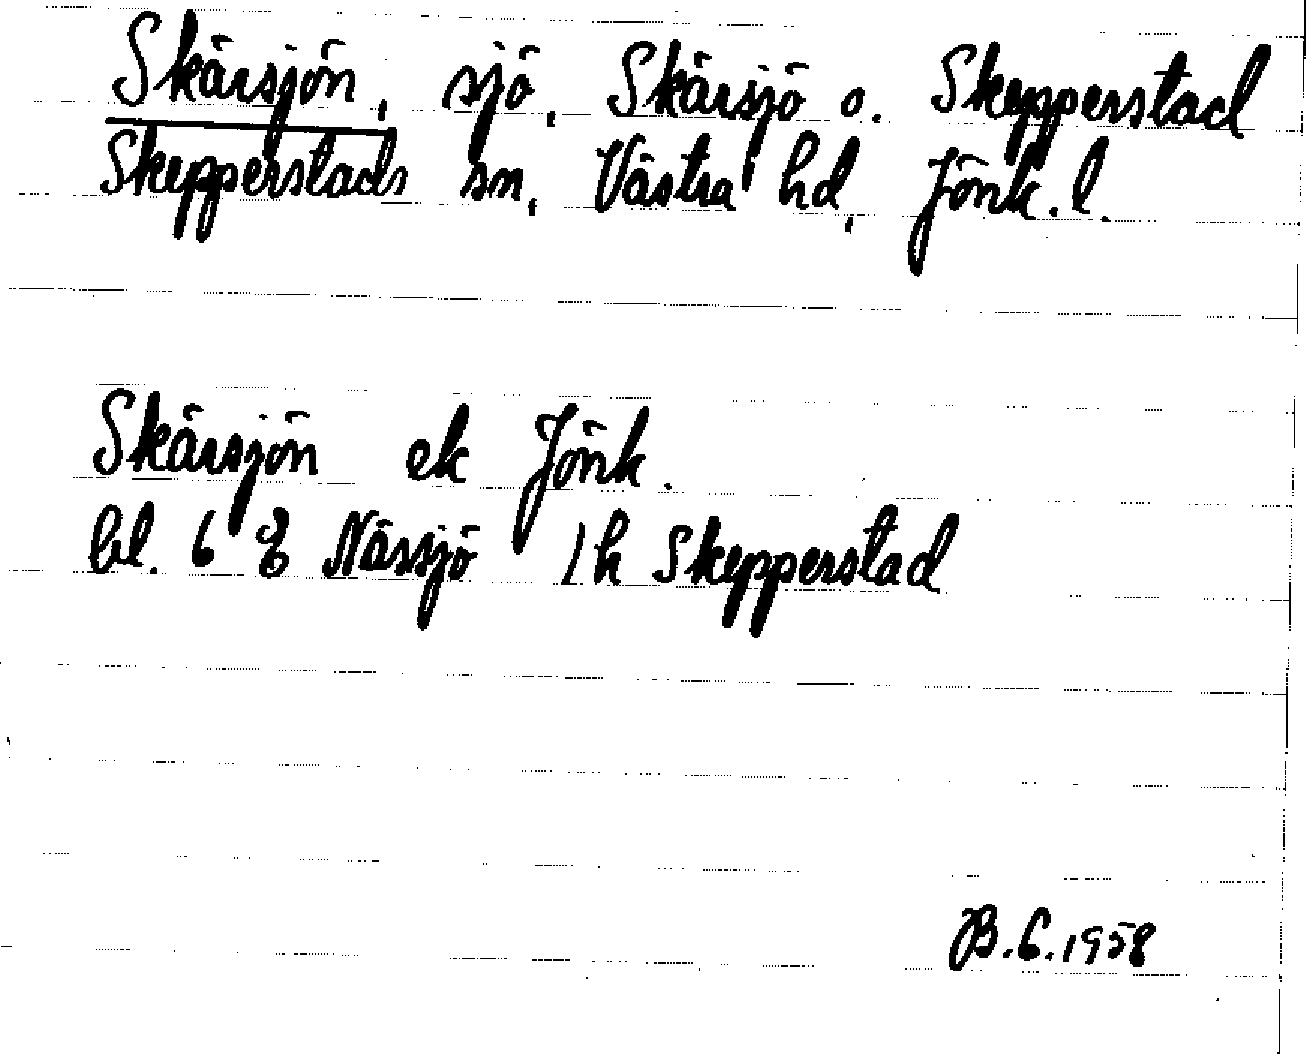 Skärsjön, sjö, Skärsjö o. Skepperstad
Skepperstads sn, Västra hd, Jönk. l.
Skärsjön ek Jönk.
bl. 6 8 Nässjö 1h Skepperstad
B.C. 1958